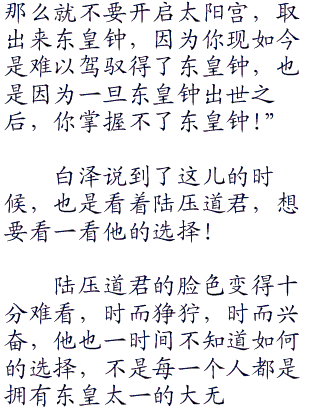 那么就不要开启太阳宫，取
出来东皇钟，因为你现如今
是难以驾驭得了东皇钟，也
是因为一旦东皇钟出世之
后，你掌握不了东皇钟！”
白泽说到了这儿的时
候，也是看着陆压道君，想
要看一看他的选择！
陆压道君的脸色变得十
分难看，时而狰狞，时而兴
奋，他也一时间不知道如何
的选择，不是每一个人都是
拥有东皇太一的大无